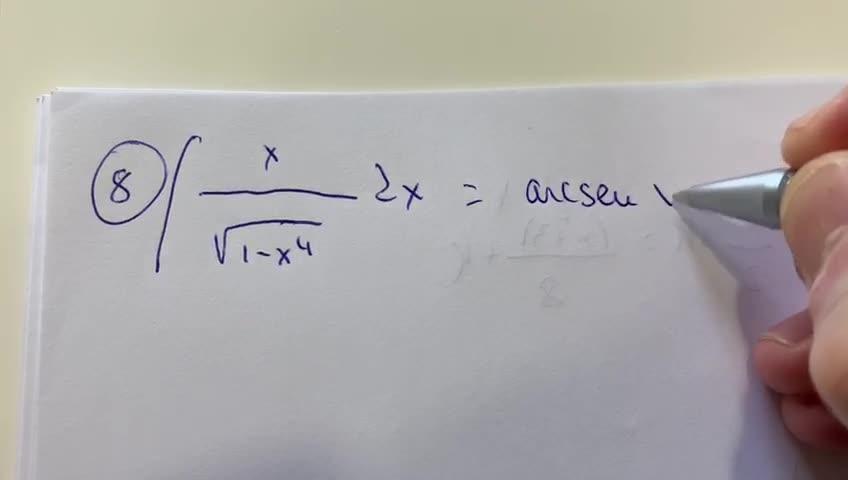 8 ∫ x / √(1-x⁴) 2x = arcsen